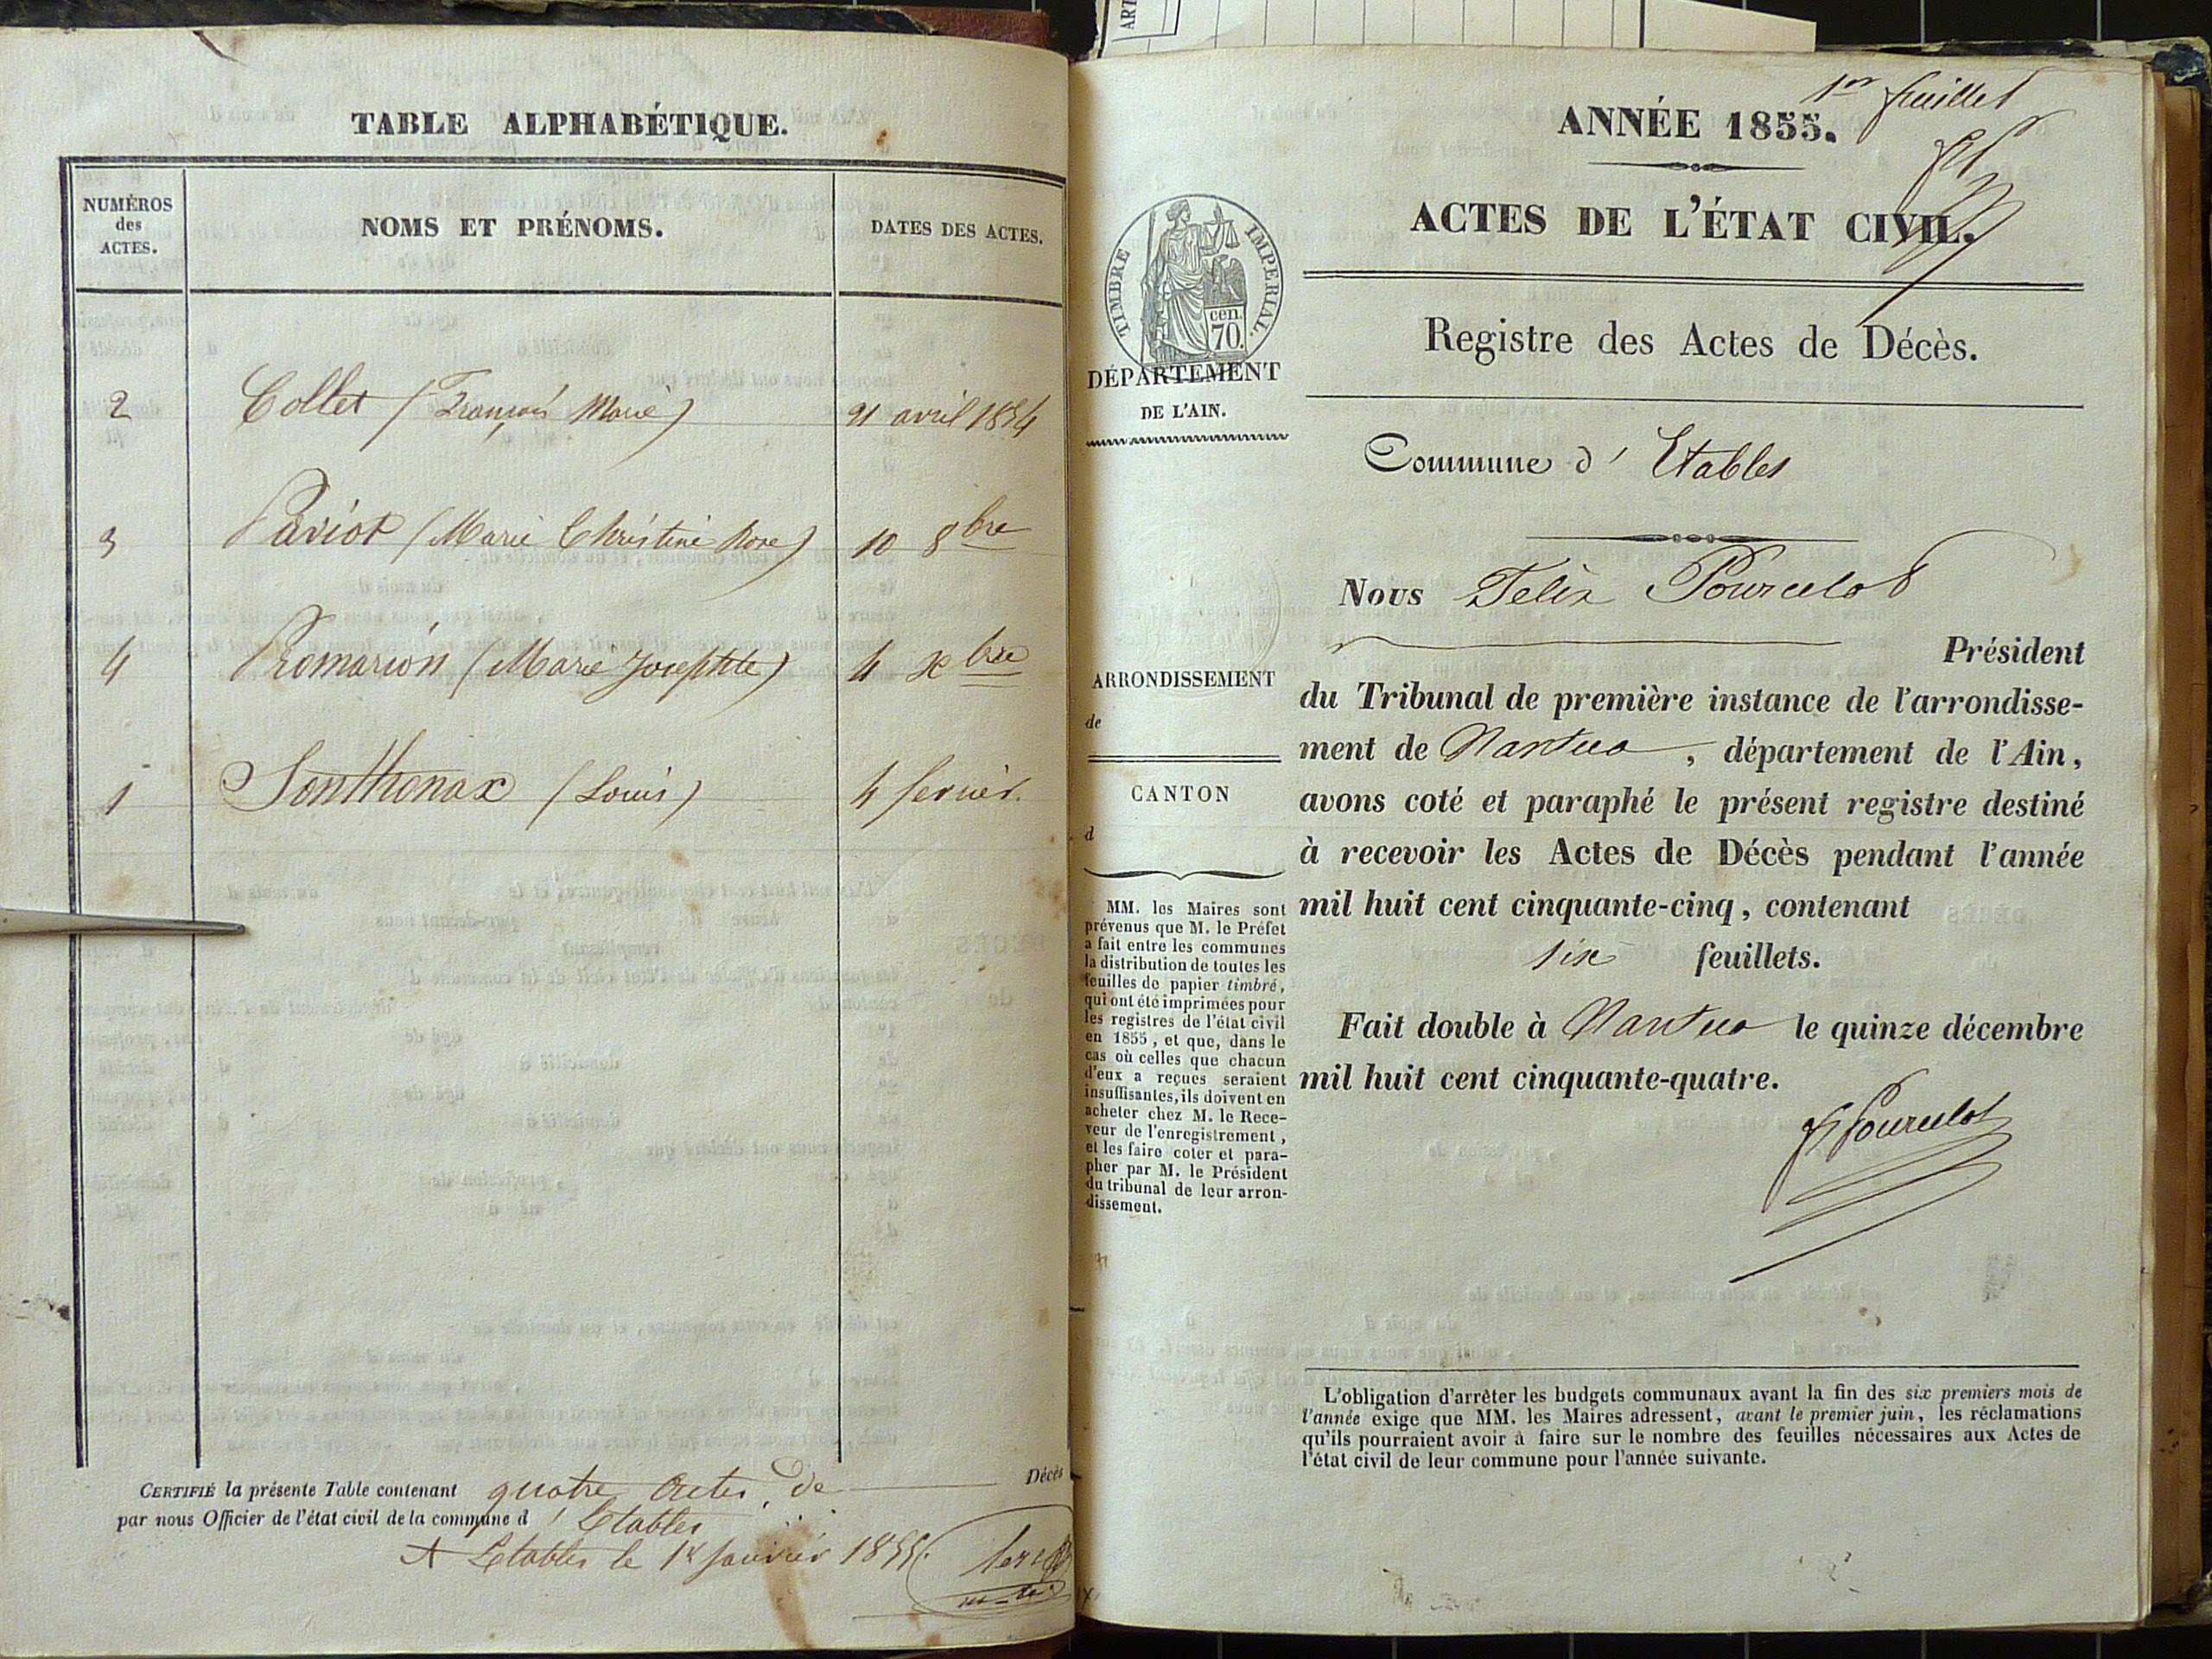 TABLE ALPHABÉTIQUE.
NUMÉROS
des
ACTES.
NOMS ET PRÉNOMS.
DATES DES ACTES.
2 Collet (François Marie) 21 avril 1854
3 Paviot (Marie Christine Rose) 10 8bre
4 Romarion (Marie Josephte) 4 xbre
1 Sonthonax (Louis) 4 fevrier.
CERTIFIÉ la présente Table contenant quatre actes de Décès
par nous Officier de l'état civil de la commune d'Etables
A Etables le 1r Janvier 1855.
ART
1er feuillet
ANNÉE 1855.
ACTES DE L'ÉTAT CIVIL.
TIMBRE IMPERIAL.
cen.
70.
Registre des Actes de Décès.
DÉPARTEMENT
DE L'AIN.
Commune d'Etables
Nous Felix Pourcelot
Président
ARRONDISSEMENT
de
du Tribunal de première instance de l'arrondisse-
ment de Nantua, département de l'Ain,
CANTON
d
avons coté et paraphé le présent registre destiné
à recevoir les Actes de Décès pendant l'année
mil huit cent cinquante-cinq, contenant
six feuillets.
Fait double à Nantua le quinze décembre
mil huit cent cinquante-quatre.
F Pourcelot
MM. les Maires sont
prévenus que M. le Préfet
a fait entre les communes
la distribution de toutes les
feuilles de papier timbré,
qui ont été imprimées pour
les registres de l'état civil
en 1855, et que, dans le
cas où celles que chacun
d'eux a reçues seraient
insuffisantes, ils doivent en
acheter chez M. le Rece-
veur de l'enregistrement,
et les faire coter et para-
pher par M. le Président
du tribunal de leur arron-
dissement.
L'obligation d'arrêter les budgets communaux avant la fin des six premiers mois de
l'année exige que MM. les Maires adressent, avant le premier juin, les réclamations
qu'ils pourraient avoir à faire sur le nombre des feuilles nécessaires aux Actes de
l'état civil de leur commune pour l'année suivante.